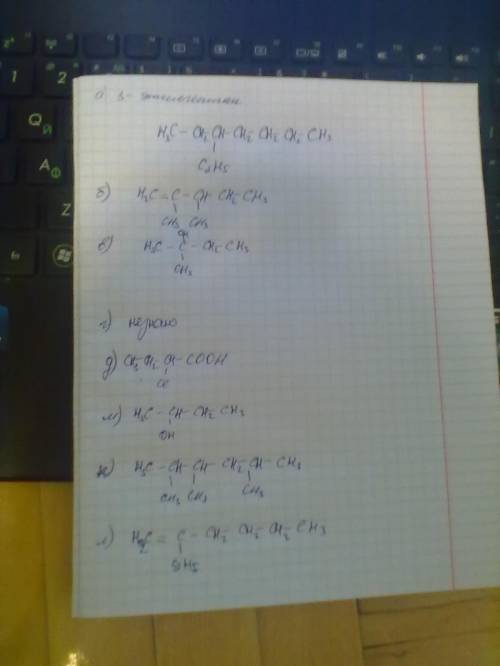 а) 3-этилгептан
H₃C - CH₂ CH - CH₂ CH₂ CH₂ - CH₃
C₂H₅
б) H₂C = C - CH - CH₂ - CH₃
CH₃ CH₃
OH
в) H₃C - C - CH₂ - CH₃
CH₃
г) незнаю
д) CH₃ CH₂ - CH - COOH
Cl
м) H₃C - CH - CH₂ CH₃
OH
к) H₃C - CH - CH - CH₂ - CH - CH₃
CH₃ CH₃ CH₃
л) H₂C = C - CH₂ - CH₂ - CH₂ - CH₃
1
2
Q Й
A Ф
Z